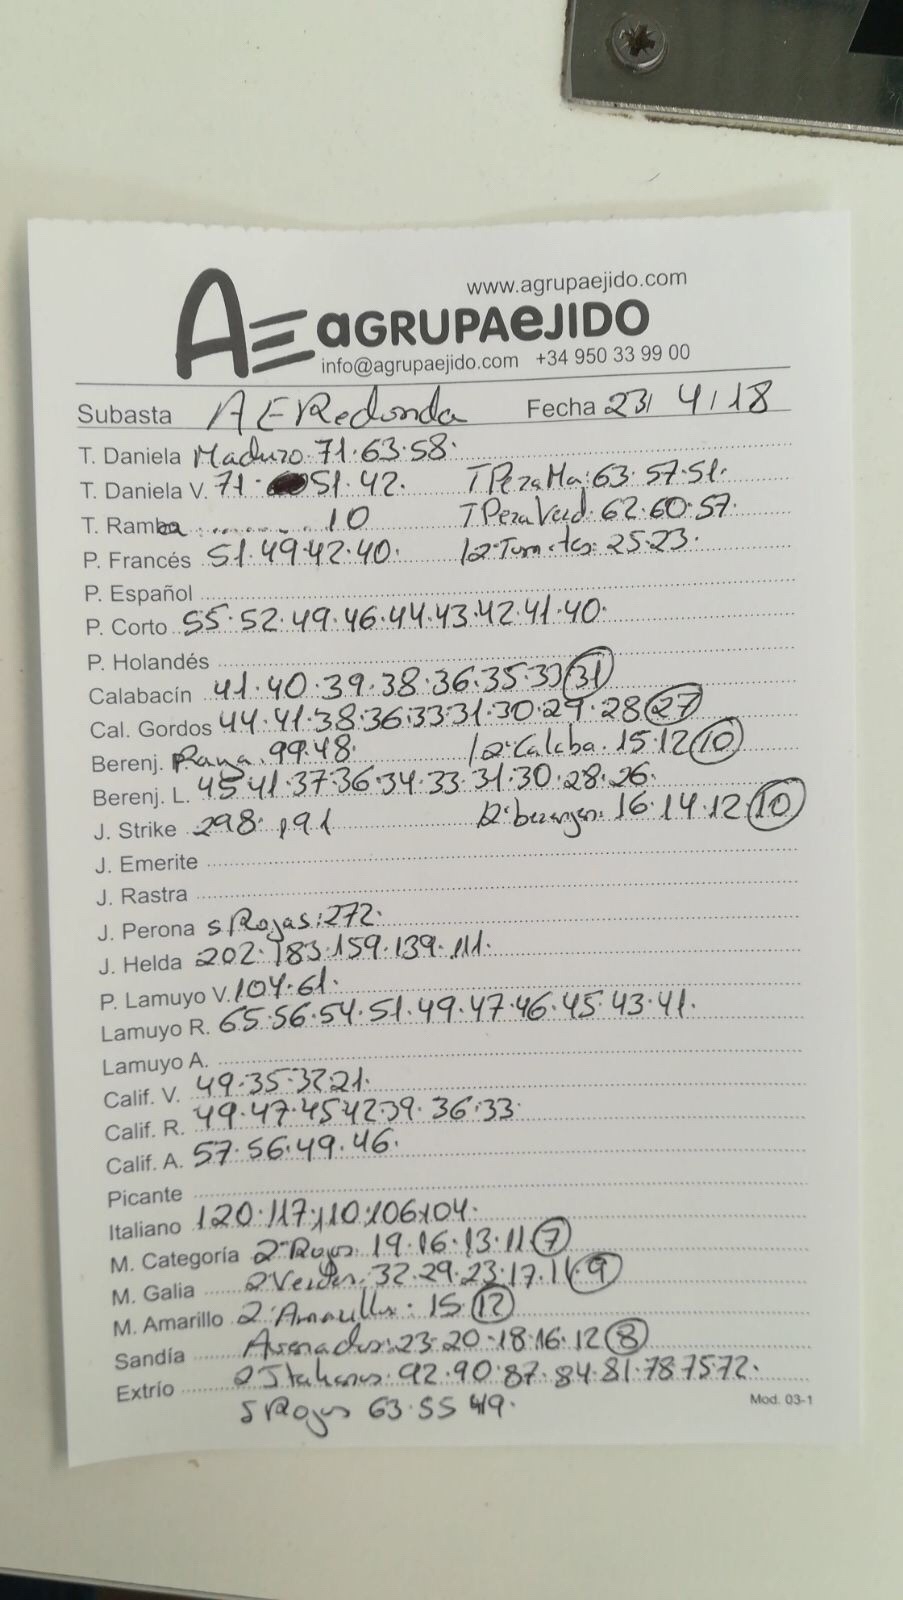 www.agrupaejido.com
AE aGRUPAeJIDO
info@agrupaejido.com +34 950 33 99 00
Subasta AERedonda Fecha 23/ 4/18
T. Daniela Maduro. 71. 63. 58.
T. Daniela V. 71. 51. 42. T Pera Ma: 63. 57. 51.
T. Ramba 10 T Pera Verd. 62. 60. 57.
P. Francés 51. 49. 42. 40. 25. 23.
P. Español
P. Corto 55. 52. 49. 46. 44. 43. 42. 41. 40.
P. Holandés
Calabacín 41. 40. 39. 38. 36. 35. 33 31
Cal. Gordos 44. 41. 38. 36. 33. 31. 30. 29. 28 27
Berenj. Raya. 99. 48. Calaba. 15. 12 10
Berenj. L. 45 41. 37. 36. 34. 33. 31. 30. 28. 26.
J. Strike 298. 191 16. 14. 12. 10
J. Emerite
J. Rastra
J. Perona s Rojas: 272.
J. Helda 202. 183. 159. 139. 111.
P. Lamuyo V. 104. 61.
Lamuyo R. 65. 56. 54. 51. 49. 47. 46. 45. 43. 41.
Lamuyo A.
Calif. V. 49. 35. 32. 21.
Calif. R. 49. 47. 45 42 39. 36. 33.
Calif. A. 57. 56. 49. 46.
Picante
Italiano 120. 117. 110. 106. 104.
M. Categoría 2ª Rojos 19. 16. 13. 11. 7
M. Galia 2 Verdes. 32. 29. 23. 17. 11. 9
M. Amarillo 2 Amarillos. 15. 12
Sandía Asenados: 23. 20. 18. 16. 12 8
Extrío 2 Italianos. 92. 90. 87. 84. 81. 78 75 72.
s Rojos 63. 55 49.
Mod. 03-1